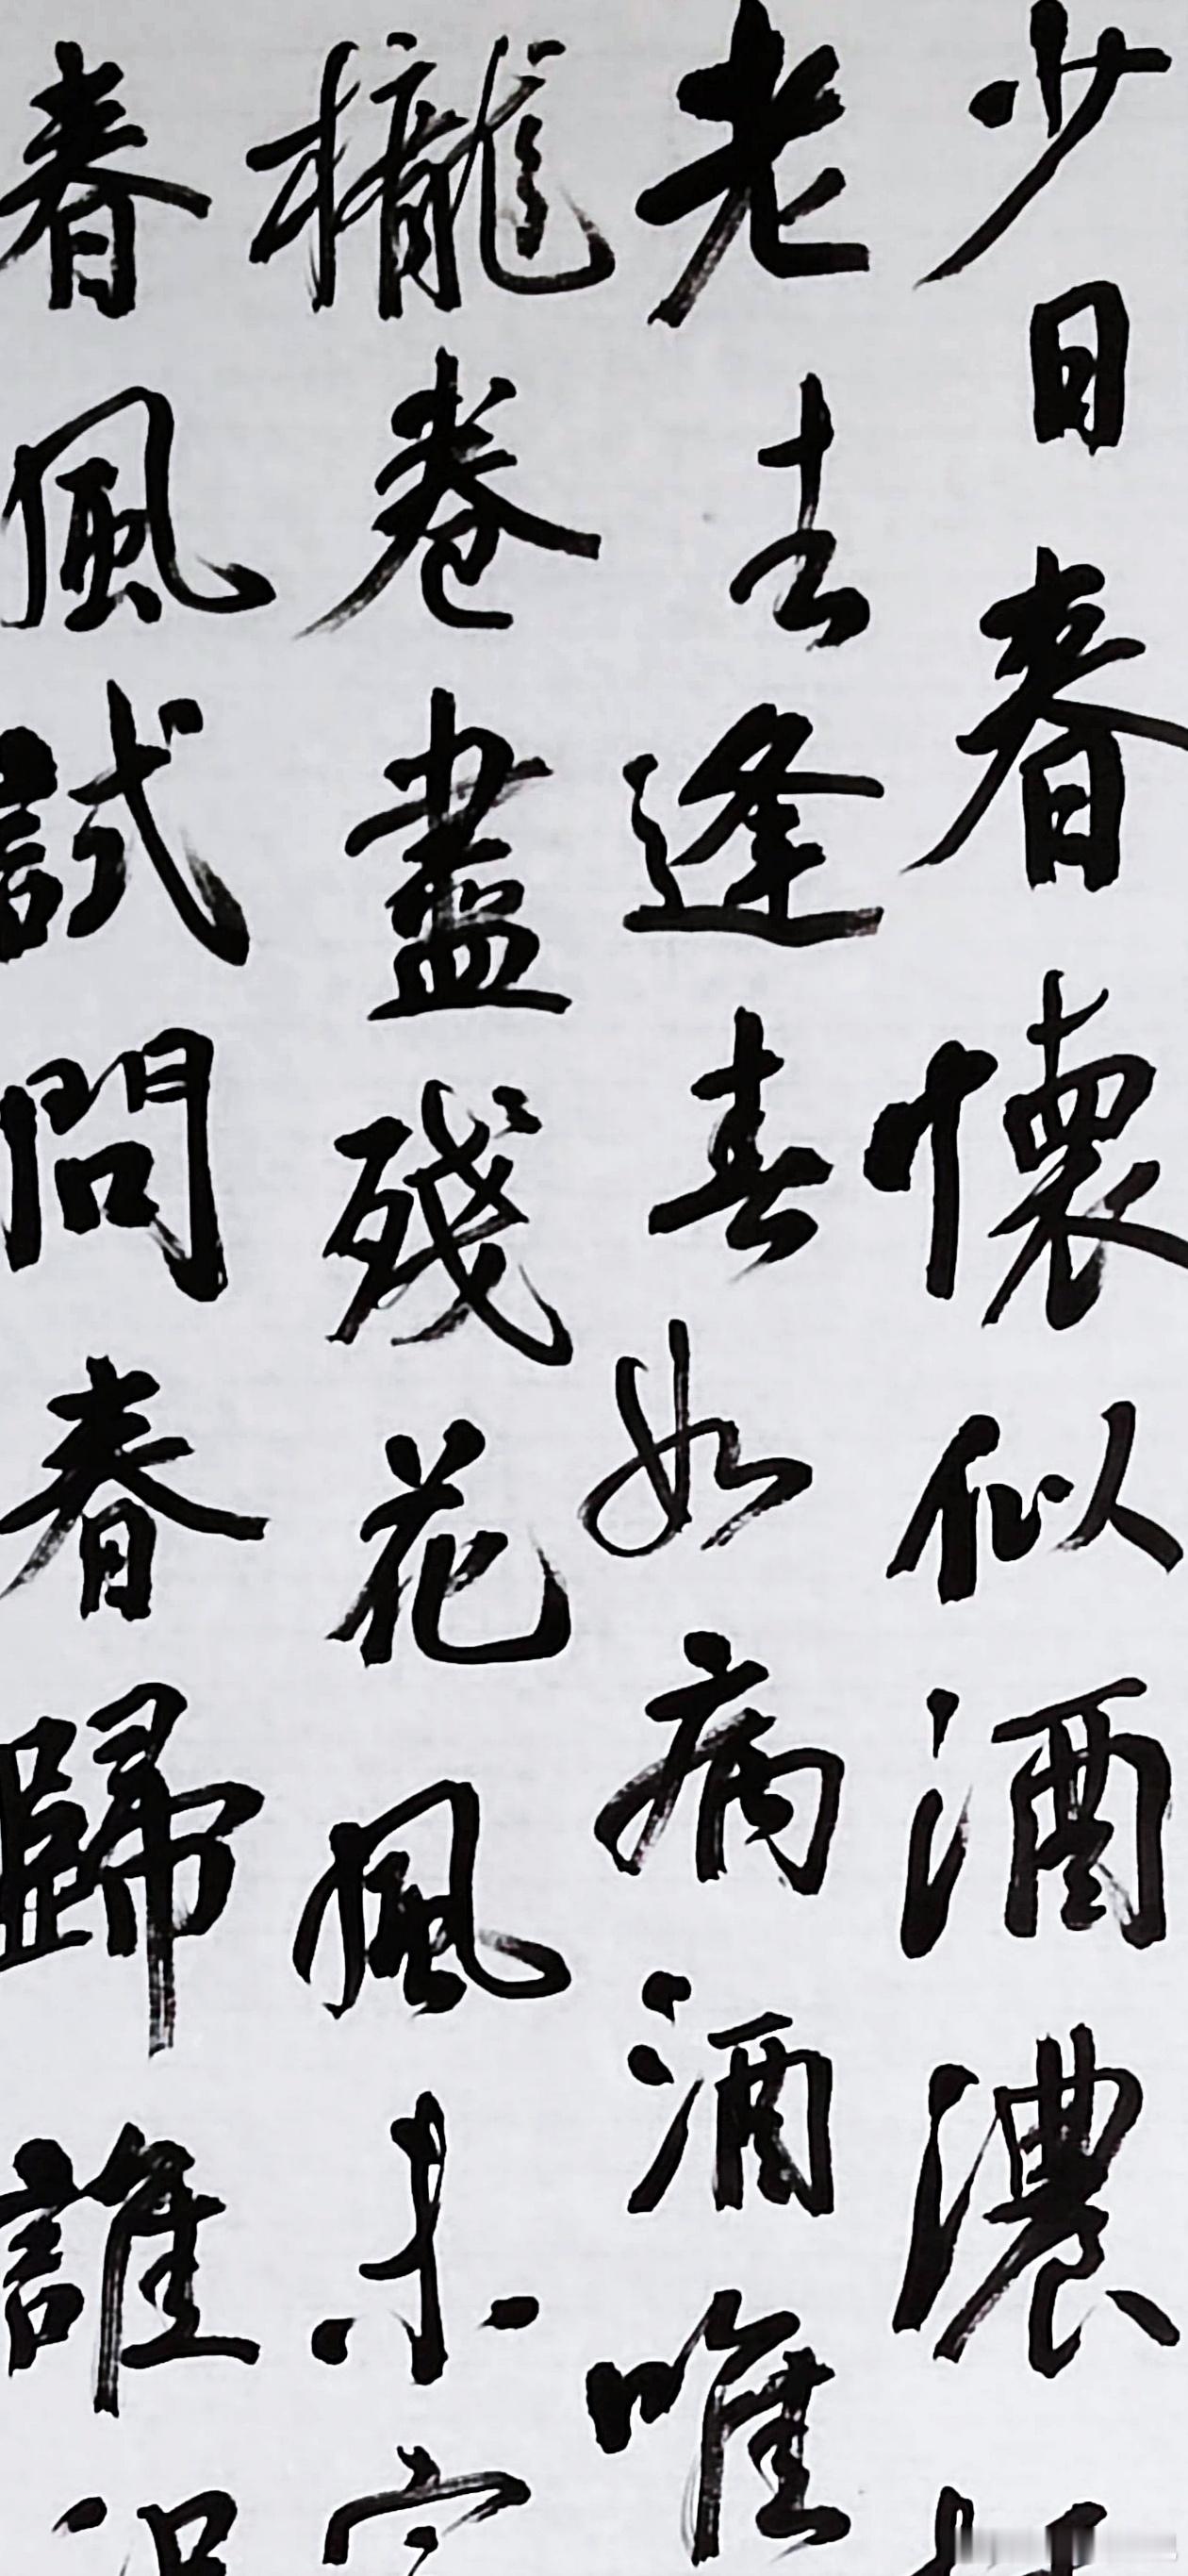 少日春懷似酒濃
老去逢春如病酒唯
櫳卷盡殘花風未
春風試問春歸誰